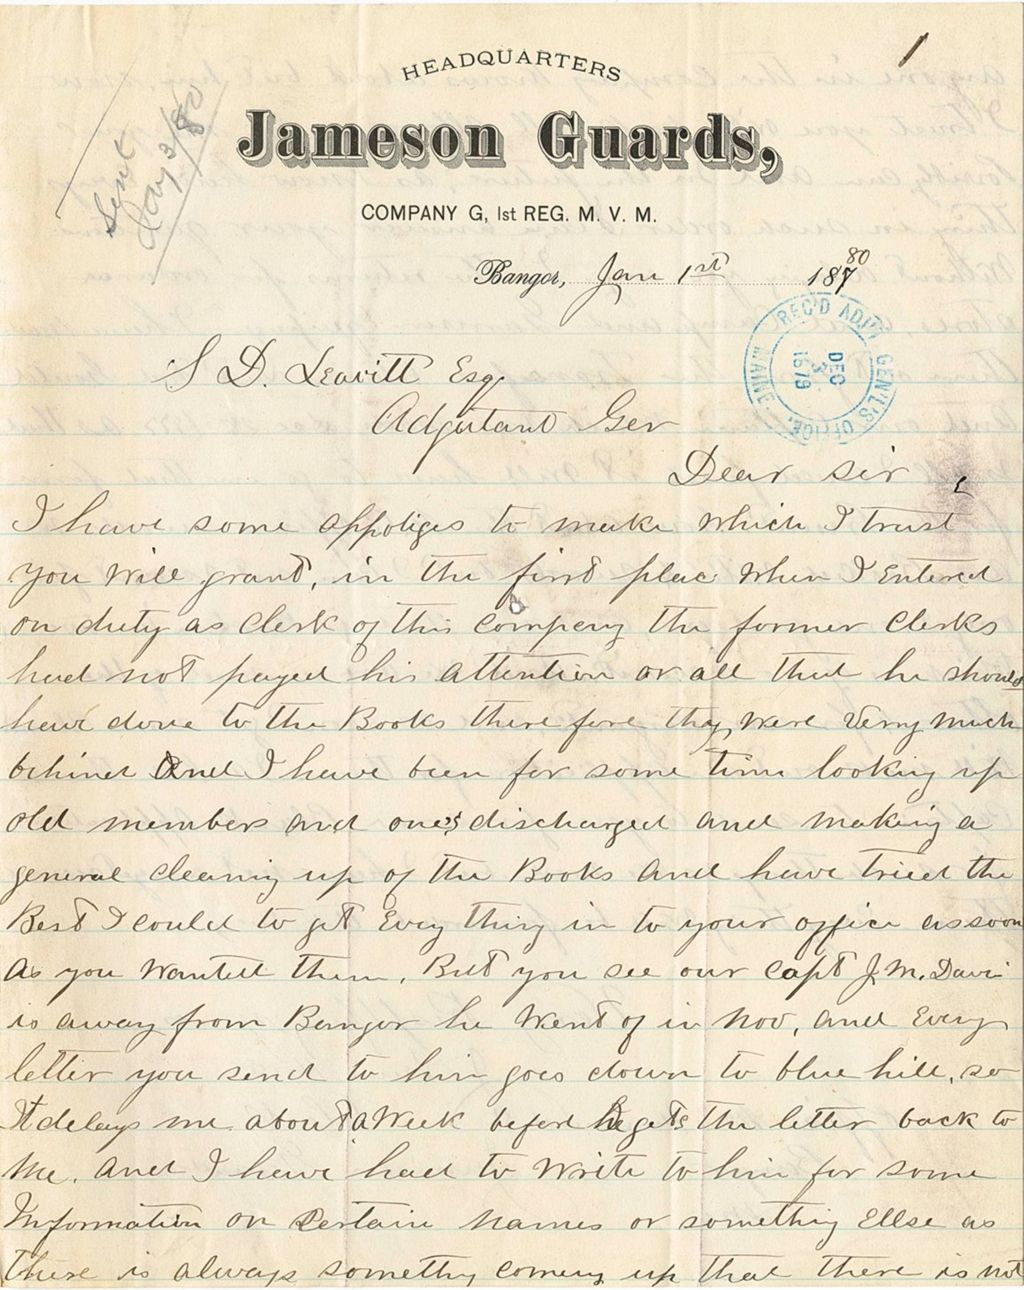 1
HEADQUARTERS
Jameson Guards,
COMPANY G, 1st REG. M. V. M.
Sent
Jany 3/80
Bangor, Jan 1st 1880
REC'D ADJT. GENL'S OFFICE, MAINE.
DEC
3
1879
S D. Leavitt Esq
Adjutant Gen
Dear sir
I have some appoligies to make which I trust
you will grant, in the first place when I Entered
on duty as clerk of this company the former clerks
had not payed his attention or all that he should
have done to the Books there fore thay were verry much
behined And I have been for some time looking up
old members and one's discharged and making a
general cleaning up of the Books and have tried the
Best I could to get Every thing in to your office assoon
as you wanted them. But you see our capt J. M. Davis
is away from Bangor he went of in Nov, and Every
letter you send to him goes down to blue hill, so
It delays me about a week before he gets the letter back to
me. and I have had to write to him for some
Information on Certain names or something Ellse as
there is always somethig coming up that there is not